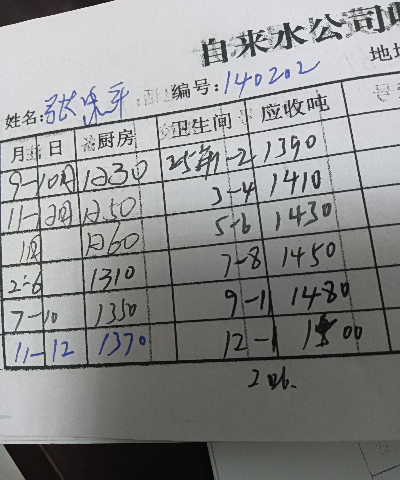 自来水公司
姓名: 张 平 编号: 140202 地址
月 日 厨房 卫生间 应收吨
9-10月 1230 25年1-2 1390
11-12月 1250 3-4 1410
1月 1260 5-6 1430
2-6 1310 7-8 1450
7-10 1350 9-11 1480
11-12 1370 12-1 1500